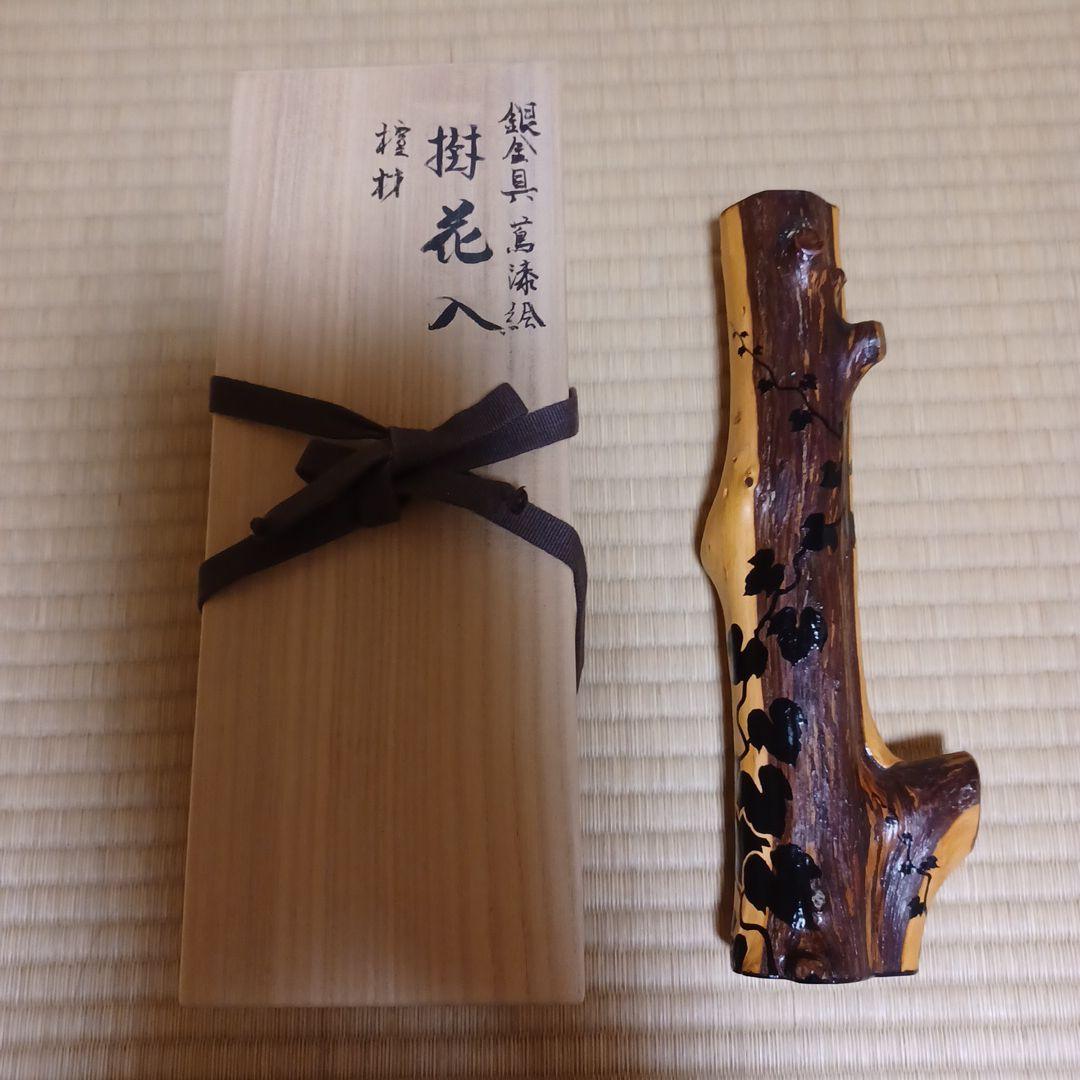 銀金具 蔦漆絵
樹花入
檀材